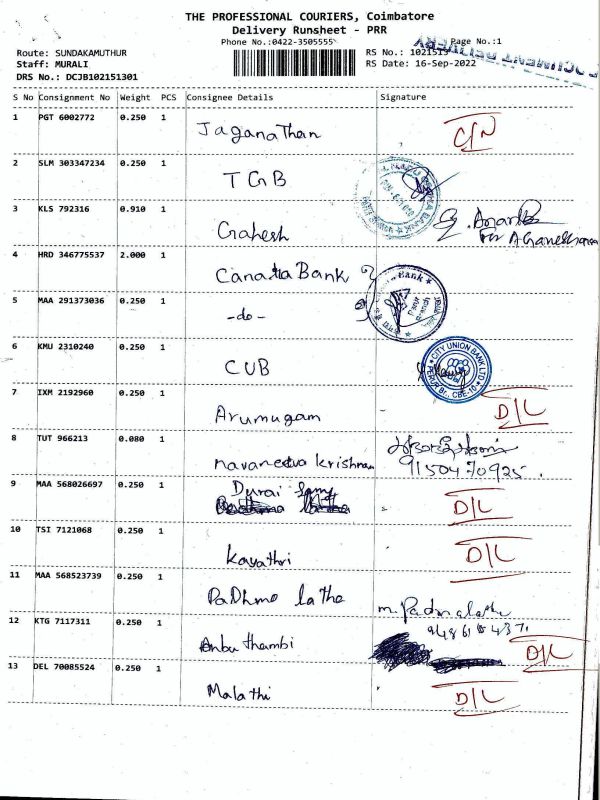 THE PROFESSIONAL COURIERS, Coimbatore
Delivery Runsheet - PRR
Phone No.:0422-3505555 Page No.:1
Route: SUNDAKAMUTHUR RS No.: 1021513
Staff: MURALI RS Date: 16-Sep-2022
DRS No.: DCJB102151301
DOCUMENT DELIVERY
S No Consignment No Weight PCS Consignee Details Signature
1 PGT 6002772 0.250 1 Jaganathan C/N
2 SLM 303347234 0.250 1 TGB
3 KLS 792316 0.910 1 Gahesh
For A Ganeshan
4 HRD 346775537 2.000 1 Canara Bank
5 MAA 291373036 0.250 1 -do-
6 KMU 2310240 0.250 1 CUB CITY UNION BANK LTD. PERUR Br., CBE-10
7 IXM 2192960 0.250 1 Arumugam D/L
8 TUT 966213 0.080 1 navaneetva krishnan
9150470925.
9 MAA 568026697 0.250 1 Durai Samy D/L
10 TSI 7121068 0.250 1 Kayathri D/L
11 MAA 568523739 0.250 1 PaDhma latha m. Padmalatha
12 KTG 7117311 0.250 1 Anbu thambi D/L
13 DEL 70085524 0.250 1 Malathi D/L